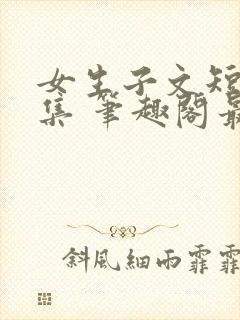 女生子文短
集 笔趣阁最
斜风细雨霏霏